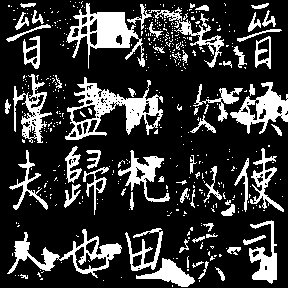 晉侯使司
馬女叔侯
來治杞田
弗盡歸也
晉悼夫人